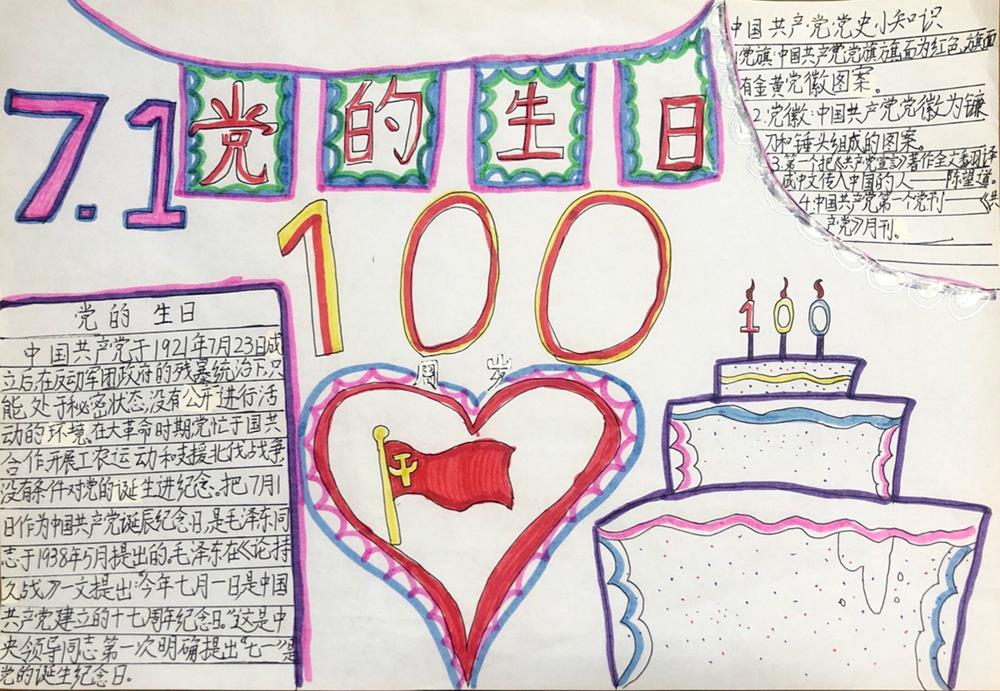 7.1
党的生日
100
周岁
中国共产党党史小知识
1.党旗:中国共产党党旗旗面为红色,旗面
有金黄党徽图案。
2.党徽:中国共产党党徽为镰
刀和锤头组成的图案。
3.第一个把《共产党宣言》著作全文翻译
成中文传入中国的人——陈望道。
4.中国共产党第一个党刊——《共
产党》月刊。
党的生日
中国共产党于1921年7月23日成
立后,在反动军团政府的残暴统治下,只
能处于秘密状态,没有公开进行活
动的环境。在大革命时期党忙于国共
合作开展工农运动和支援北伐战争
没有条件对党的诞生进纪念。把7月1
日作为中国共产党诞辰纪念日,是毛泽东同
志于1938年5月提出的。毛泽东在《论持
久战》一文提出:"今年七月一日是中国
共产党建立的十七周年纪念日"这是中
央领导同志第一次明确提出"七一"是
党的诞生纪念日。
100